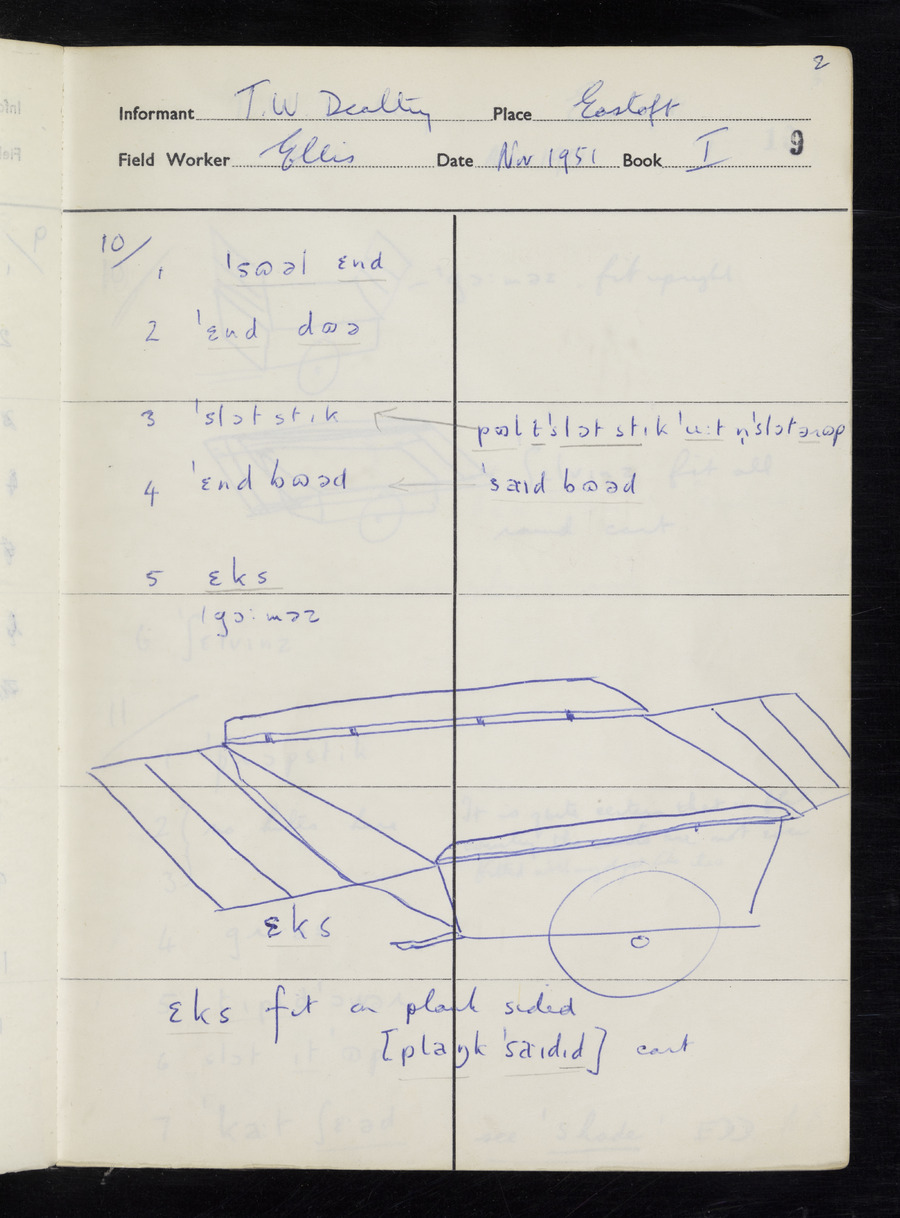 2
Informant T.W Dealtry Place Eastoft
Field Worker Ellis Date Nov 1951 Book I 9
10/
1 ˈsɷəl ɛnd
2 ˈɛnd dɷə
3 ˈslɔt stɪk pɷl t̬ˈslɔt stɪk ˈuːt n̩ˈslɔtərɷp
4 ˈɛnd bɷəd ˈsaɪd bɷəd
5 ɛks
ˈgɔːməz
ɛks
ɛks fit on plank sided
[plaŋk ˈsaɪdɪd] cart